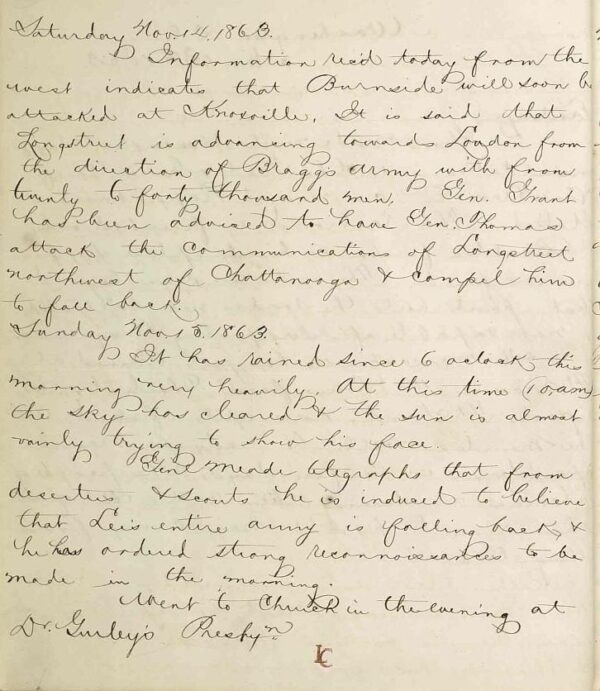 Saturday Nov. 14, 1863.
Information rec'd today from the
west indicates that Burnside will soon be
attacked at Knoxville. It is said that
Longstreet is advancing towards Loudon from
the direction of Braggs army with from
twenty to forty thousand men. Gen. Grant
has been advised to have Gen. Thomas
attack the communications of Longstreet
northwest of Chattanooga & compel him
to fall back.
Sunday Nov. 15. 1863.
It has rained since 6 oclock this
morning very heavily. At this time (10, am)
the sky has cleared & the sun is almost
vainly trying to show his face.
Genl Meade telegraphs that from
deserters & scouts he is induced to believe
that Lees entire army is falling back, &
he has ordered strong reconnoissances to be
made in the morning.
Went to Church in the evening at
Dr. Gurley's Presbyn.
LC